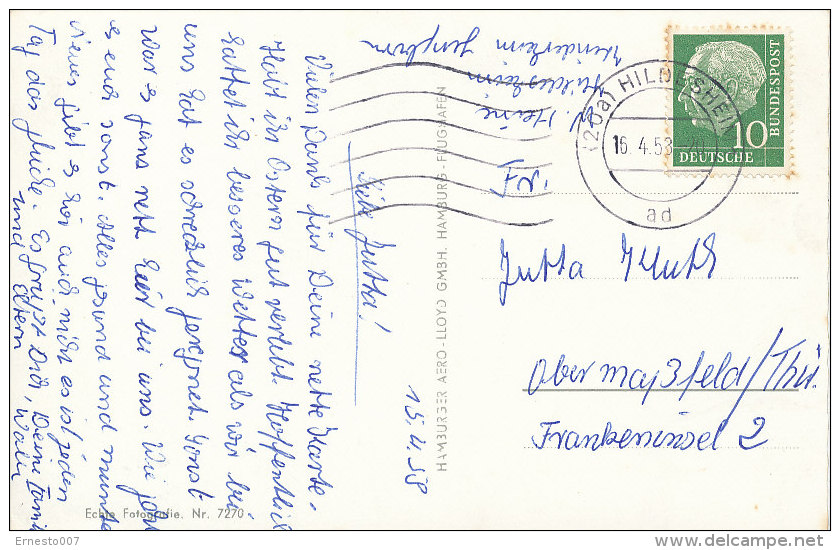 15.4.58
Liebe Jutta!
Vielen Dank für Deine nette Karte.
Habt ihr Ostern gut verlebt. Hoffentlich
hattet ihr besseres Wetter als wir bei
uns hat es schrecklich geregnet. Sonst
war es ganz nett hier bei uns. Wie geht
es euch sonst. Alles gesund und munter
neues gibt es hier auch nicht es ist jeden
Tag das gleiche. Es grüßt Dich, Deine Famil
und Eltern
Echte Fotografie. Nr. 7270
HAMBURGER AERO-LLOYD GMBH. HAMBURG-FLUGHAFEN
Heine
Hildesheim
(20a) HILDESHEIM
16.4.58
ad
DEUTSCHE
BUNDESPOST
10
Jutta
Obermaßfeld/Thür.
Frankeninsel 2
Ernesto007
delcampe.net